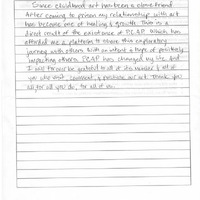 Since childhood art has been a close friend
After coming to prison my relationship with art
has become one of healing & growth. This is a
direct result of the existence of PCAP which has
afforded me a platform to share this exploratory
journey with others with an intent & hope of positively
impacting others. PCAP has changed my life and
I will forever be grateful to all of its members & all of
you who visit, comment, & purchase our art. Thank you
all for all you do, for all of us.